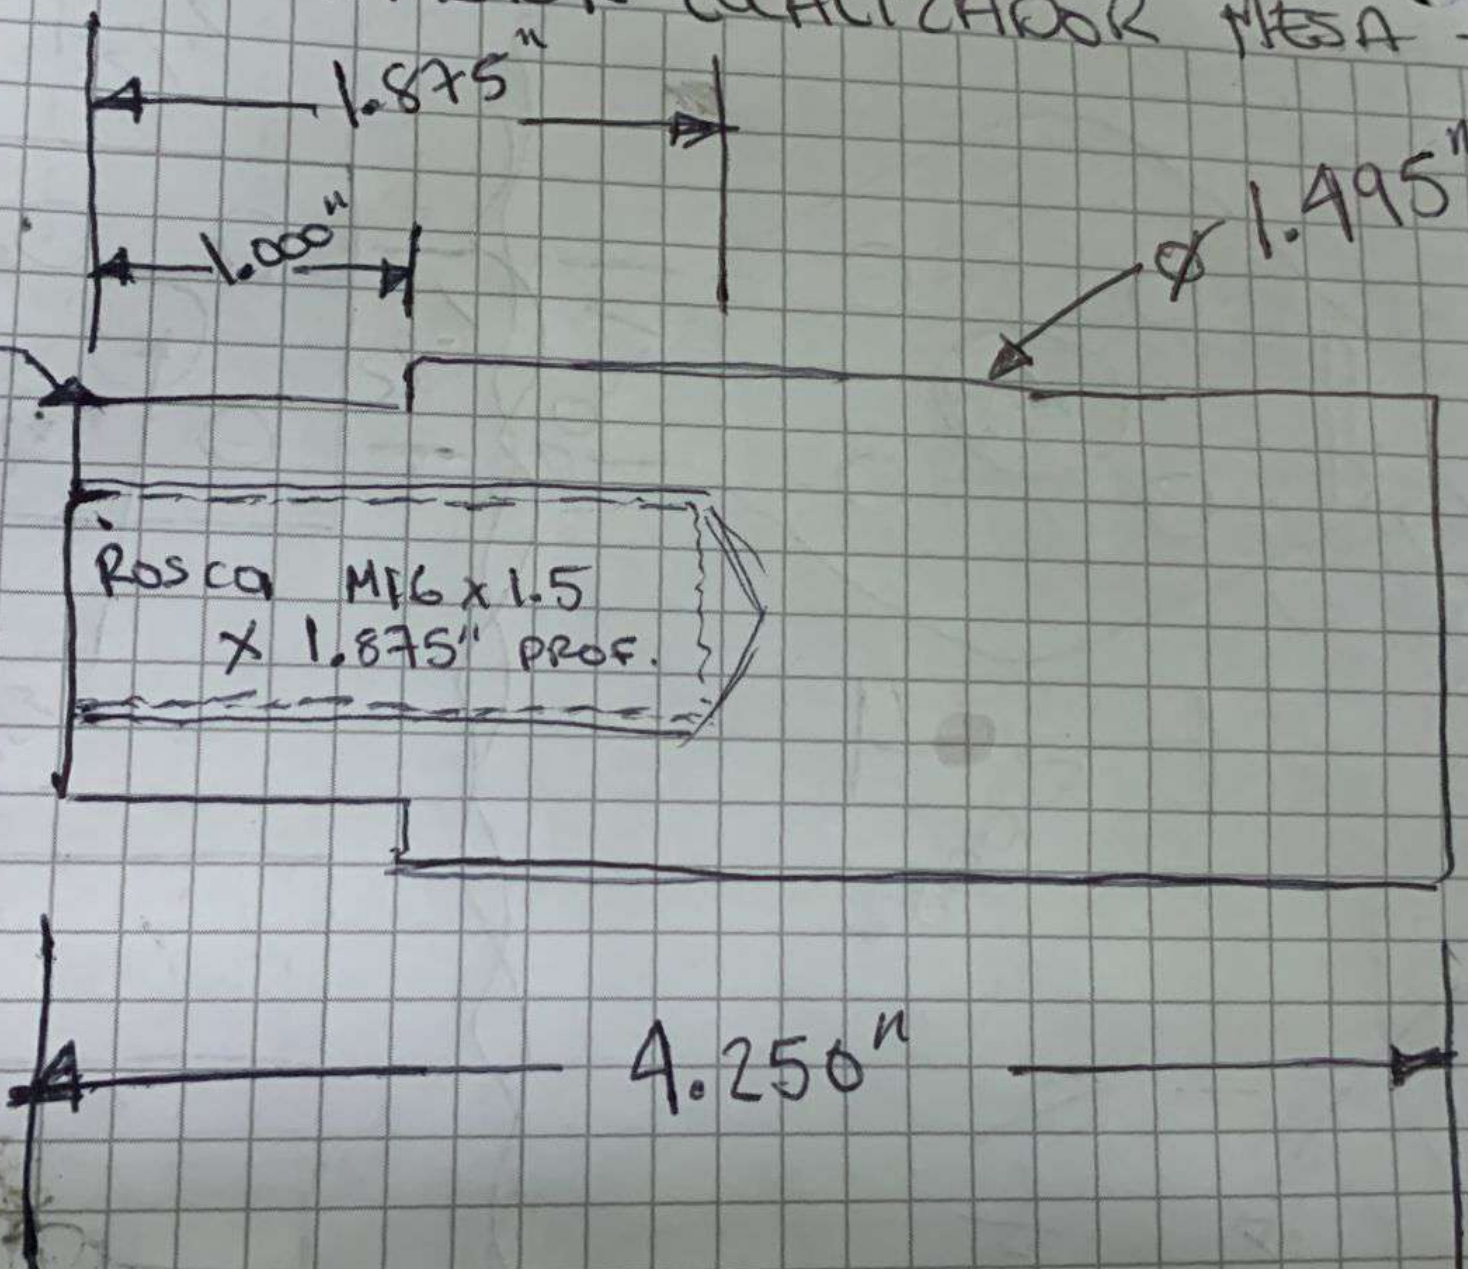 LOCALIZADOR MESA -
1.875"
1.000"
ø 1.495"
Rosca M16 x 1.5
x 1.875" PROF.
4.250"